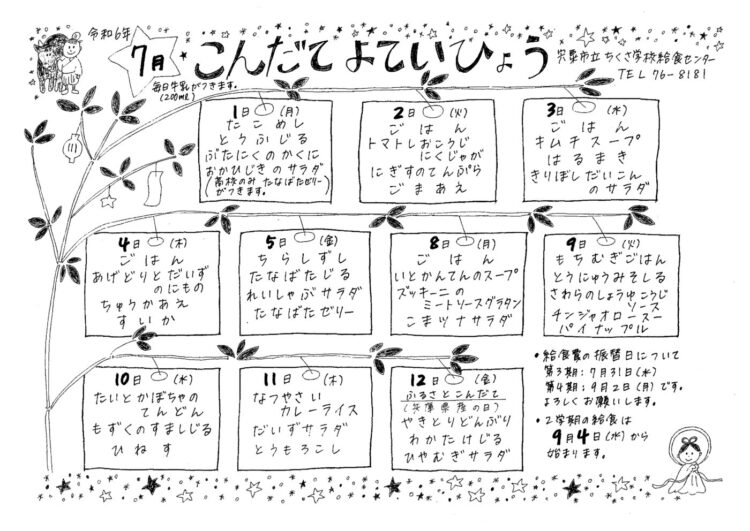 令和6年
7月
こんだてよていひょう
宍粟市立ちくさ学校給食センター
TEL 76-8181
毎日牛乳がつきます。
(200mL)
1日 (月)
たこめし
とうふじる
ぶたにくのかくに
おかひじきのサラダ
(高校のみ たなばたゼリー
がつきます。)
2日 (火)
ごはん
トマトしおこうじ
にくじゃが
にぎすのてんぷら
ごまあえ
3日 (水)
ごはん
キムチスープ
はるまき
きりぼしだいこん
のサラダ
4日 (木)
ごはん
あげどりとだいず
のにもの
ちゅうかあえ
すいか
5日 (金)
ちらしずし
たなばたじる
れいしゃぶサラダ
たなばたゼリー
8日 (月)
ごはん
いとかんてんのスープ
ズッキーニの
ミートソースグラタン
こまツナサラダ
9日 (火)
もちむぎごはん
とうにゅうみそしる
さわらのしょうゆこうじ
ソース
チンジャオロースー
パイナップル
10日 (水)
たいとかぼちゃの
てんどん
もずくのすましじる
ひねす
11日 (木)
なつやさい
カレーライス
だいずサラダ
とうもろこし
12日 (金)
ふるさとこんだて
(兵庫県産の日)
やきとりどんぶり
わかたけじる
ひやむぎサラダ
・給食費の振替日について
第3期:7月31日(水)
第4期:9月2日(月)です。
よろしくお願いします。
・2学期の給食は
9月4日(水)から
始まります。